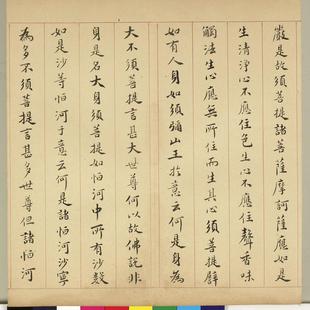 嚴是故須菩提諸菩薩摩訶薩應如是
生清淨心不應住色生心不應住聲香味
觸法生心應無所住而生其心須菩提譬
如有人身如須彌山王於意云何是身為
大不須菩提言甚大世尊何以故佛說非
身是名大身須菩提如恒河中所有沙數
如是沙等恒河于意云何是諸恒河沙寧
為多不須菩提言甚多世尊但諸恒河